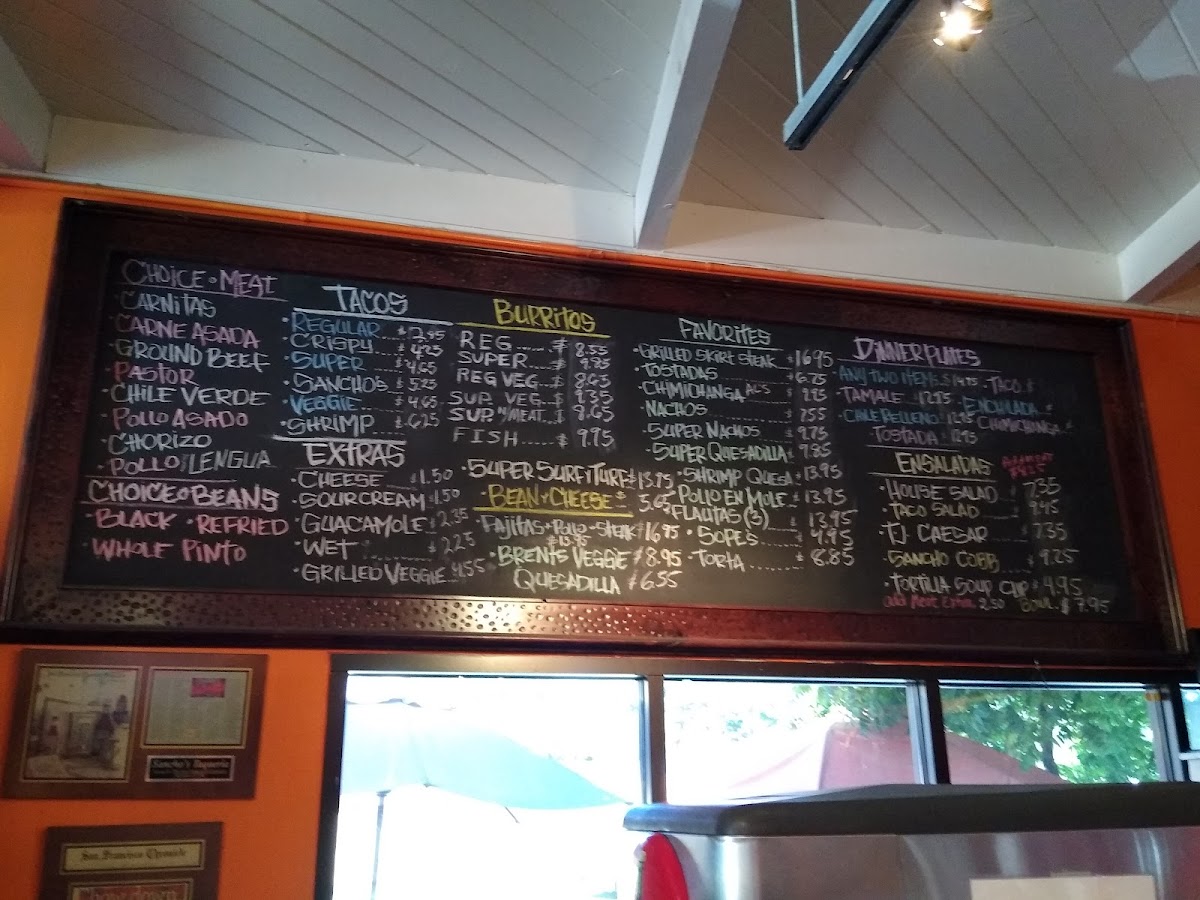 CHOICE • MEAT
• CARNITAS
• CARNE ASADA
• GROUND BEEF
• PASTOR
• CHILE VERDE
• POLLO ASADO
• CHORIZO
• POLLO LENGUA
CHOICE • BEANS
• BLACK • REFRIED
• WHOLE PINTO
TACOS
• REGULAR
• CRISPY $ 4.25
• SUPER $ 4.65
• SANCHO'S $ 5.25
• VEGGIE $ 4.65
• SHRIMP $ 6.25
EXTRAS
• CHEESE $1.50
• SOURCREAM $1.50
• GUACAMOLE $ 2.35
• WET $ 2.25
• GRILLED VEGGIE 4.55
BURRITOS
REG $ 8.55
SUPER $ 9.85
REG VEG $ 8.65
SUP VEG $ 9.35
SUP W/MEAT $ 8.65
FISH $ 9.75
• SUPER SURF/TURF $13.75
• BEAN & CHEESE $ 5.65
• FAJITAS • POLLO • STEAK $16.95
$13.95
• BRENT'S VEGGIE $8.95
QUESADILLA $6.55
FAVORITES
• GRILLED SKIRT STEAK $16.95
• TOSTADAS $ 6.75
• CHIMICHANGA
• NACHOS $ 7.55
• SUPER NACHOS $ 9.75
• SUPER QUESADILLA $ 9.85
• SHRIMP QUESA $13.95
• POLLO EN MOLE $13.95
• FLAUTAS (3) $ 13.95
• SOPES $ 4.95
• TORTA $ 8.85
DINNER PLATES
• ANY TWO ITEMS $14.95 • TACO $
• TAMALE 12.95 ENCHILADA $
• CHILE RELLENO 12.95 CHIMICHANGA $
TOSTADA $12.95
ENSALADAS
• HOUSE SALAD $ 7.35
• TACO SALAD $ 9.45
• EL CAESAR $ 7.35
• SANCHO COBB $ 9.25
• TORTILLA SOUP CUP $4.95
Add Meat Extra 2.50 BOWL $ 7.95
Sancho's Taqueria
San Francisco Chronicle
Chowdown